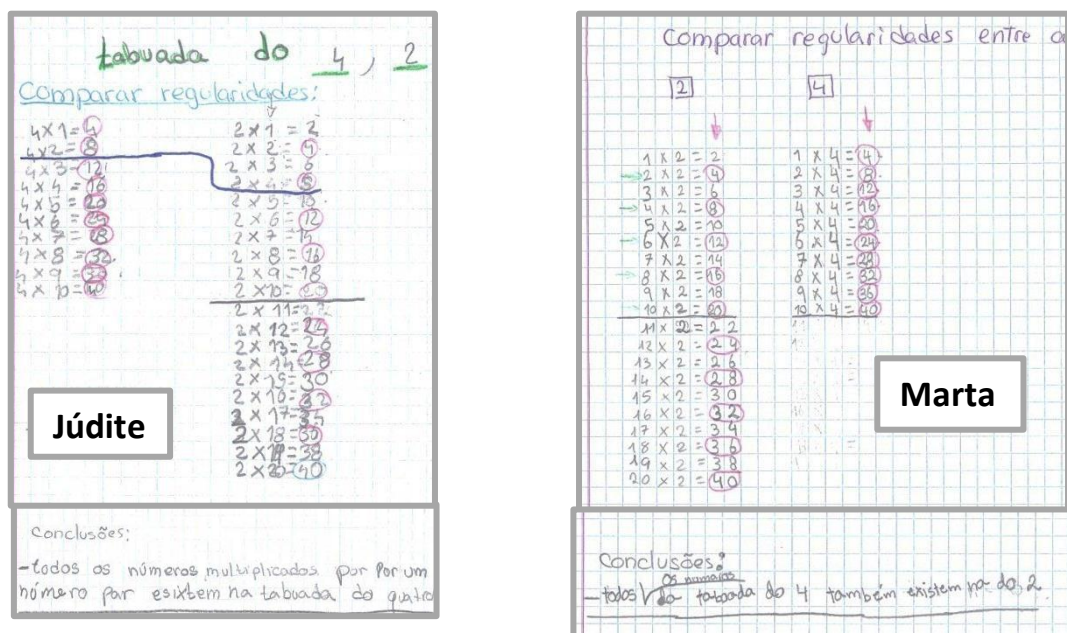 tabuada do 4, 2
Comparar regularidades:
4x1=4
4x2=8
4x3=12
4x4=16
4x5=20
4x6=24
4x7=28
4x8=32
4x9=36
4x10=40
2x1=2
2x2=4
2x3=6
2x4=8
2x5=10
2x6=12
2x7=14
2x8=16
2x9=18
2x10=20
2x11=22
2x12=24
2x13=26
2x14=28
2x15=30
2x16=32
2x17=34
2x18=36
2x19=38
2x20=40
Júdite
Conclusões:
-todos os números multiplicados por Por um
número par esixtem na tabuada do quatro
Comparar regularidades entre a
2
4
1 x 2 = 2
2 x 2 = 4
3 x 2 = 6
4 x 2 = 8
5 x 2 = 10
6 x 2 = 12
7 x 2 = 14
8 x 2 = 16
9 x 2 = 18
10 x 2 = 20
11 x 2 = 22
12 x 2 = 24
13 x 2 = 26
14 x 2 = 28
15 x 2 = 30
16 x 2 = 32
17 x 2 = 34
18 x 2 = 36
19 x 2 = 38
20 x 2 = 40
1 x 4 = 4
2 x 4 = 8
3 x 4 = 12
4 x 4 = 16
5 x 4 = 20
6 x 4 = 24
7 x 4 = 28
8 x 4 = 32
9 x 4 = 36
10 x 4 = 40
Marta
Conclusões:
os números
- todos da taboada do 4 também existem na do 2.